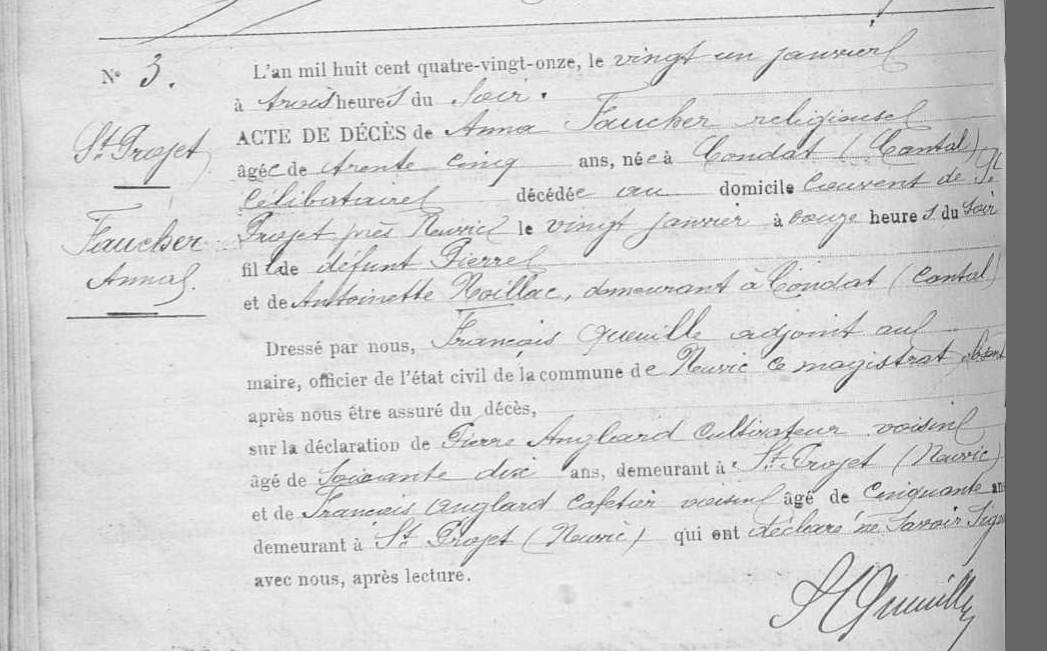 N° 3.
St Projet
Faucher
Anna
L'an mil huit cent quatre-vingt-onze, le vingt un janvier
à trois heures du soir.
ACTE DE DÉCÈS de Anna Faucher religieuse
âgée de trente cinq ans, née à Condat (Cantal)
Célibataire décédée au domicile Couvent de St
Projet près Neuvic le vingt janvier à onze heures du soir
fille de défunt Pierre
et de Antoinette Noillac, demeurant à Condat (Cantal)
Dressé par nous, François Queuille adjoint au
maire, officier de l'état civil de la commune de Neuvic ce magistrat absent
après nous être assuré du décès,
sur la déclaration de Pierre Anglard cultivateur voisin
âgé de soixante dix ans, demeurant à St Projet (Neuvic)
et de François Anglard cafetier voisin âgé de cinquante an
demeurant à St Projet (Neuvic) qui ont déclaré ne savoir sign
avec nous, après lecture.
Queuille